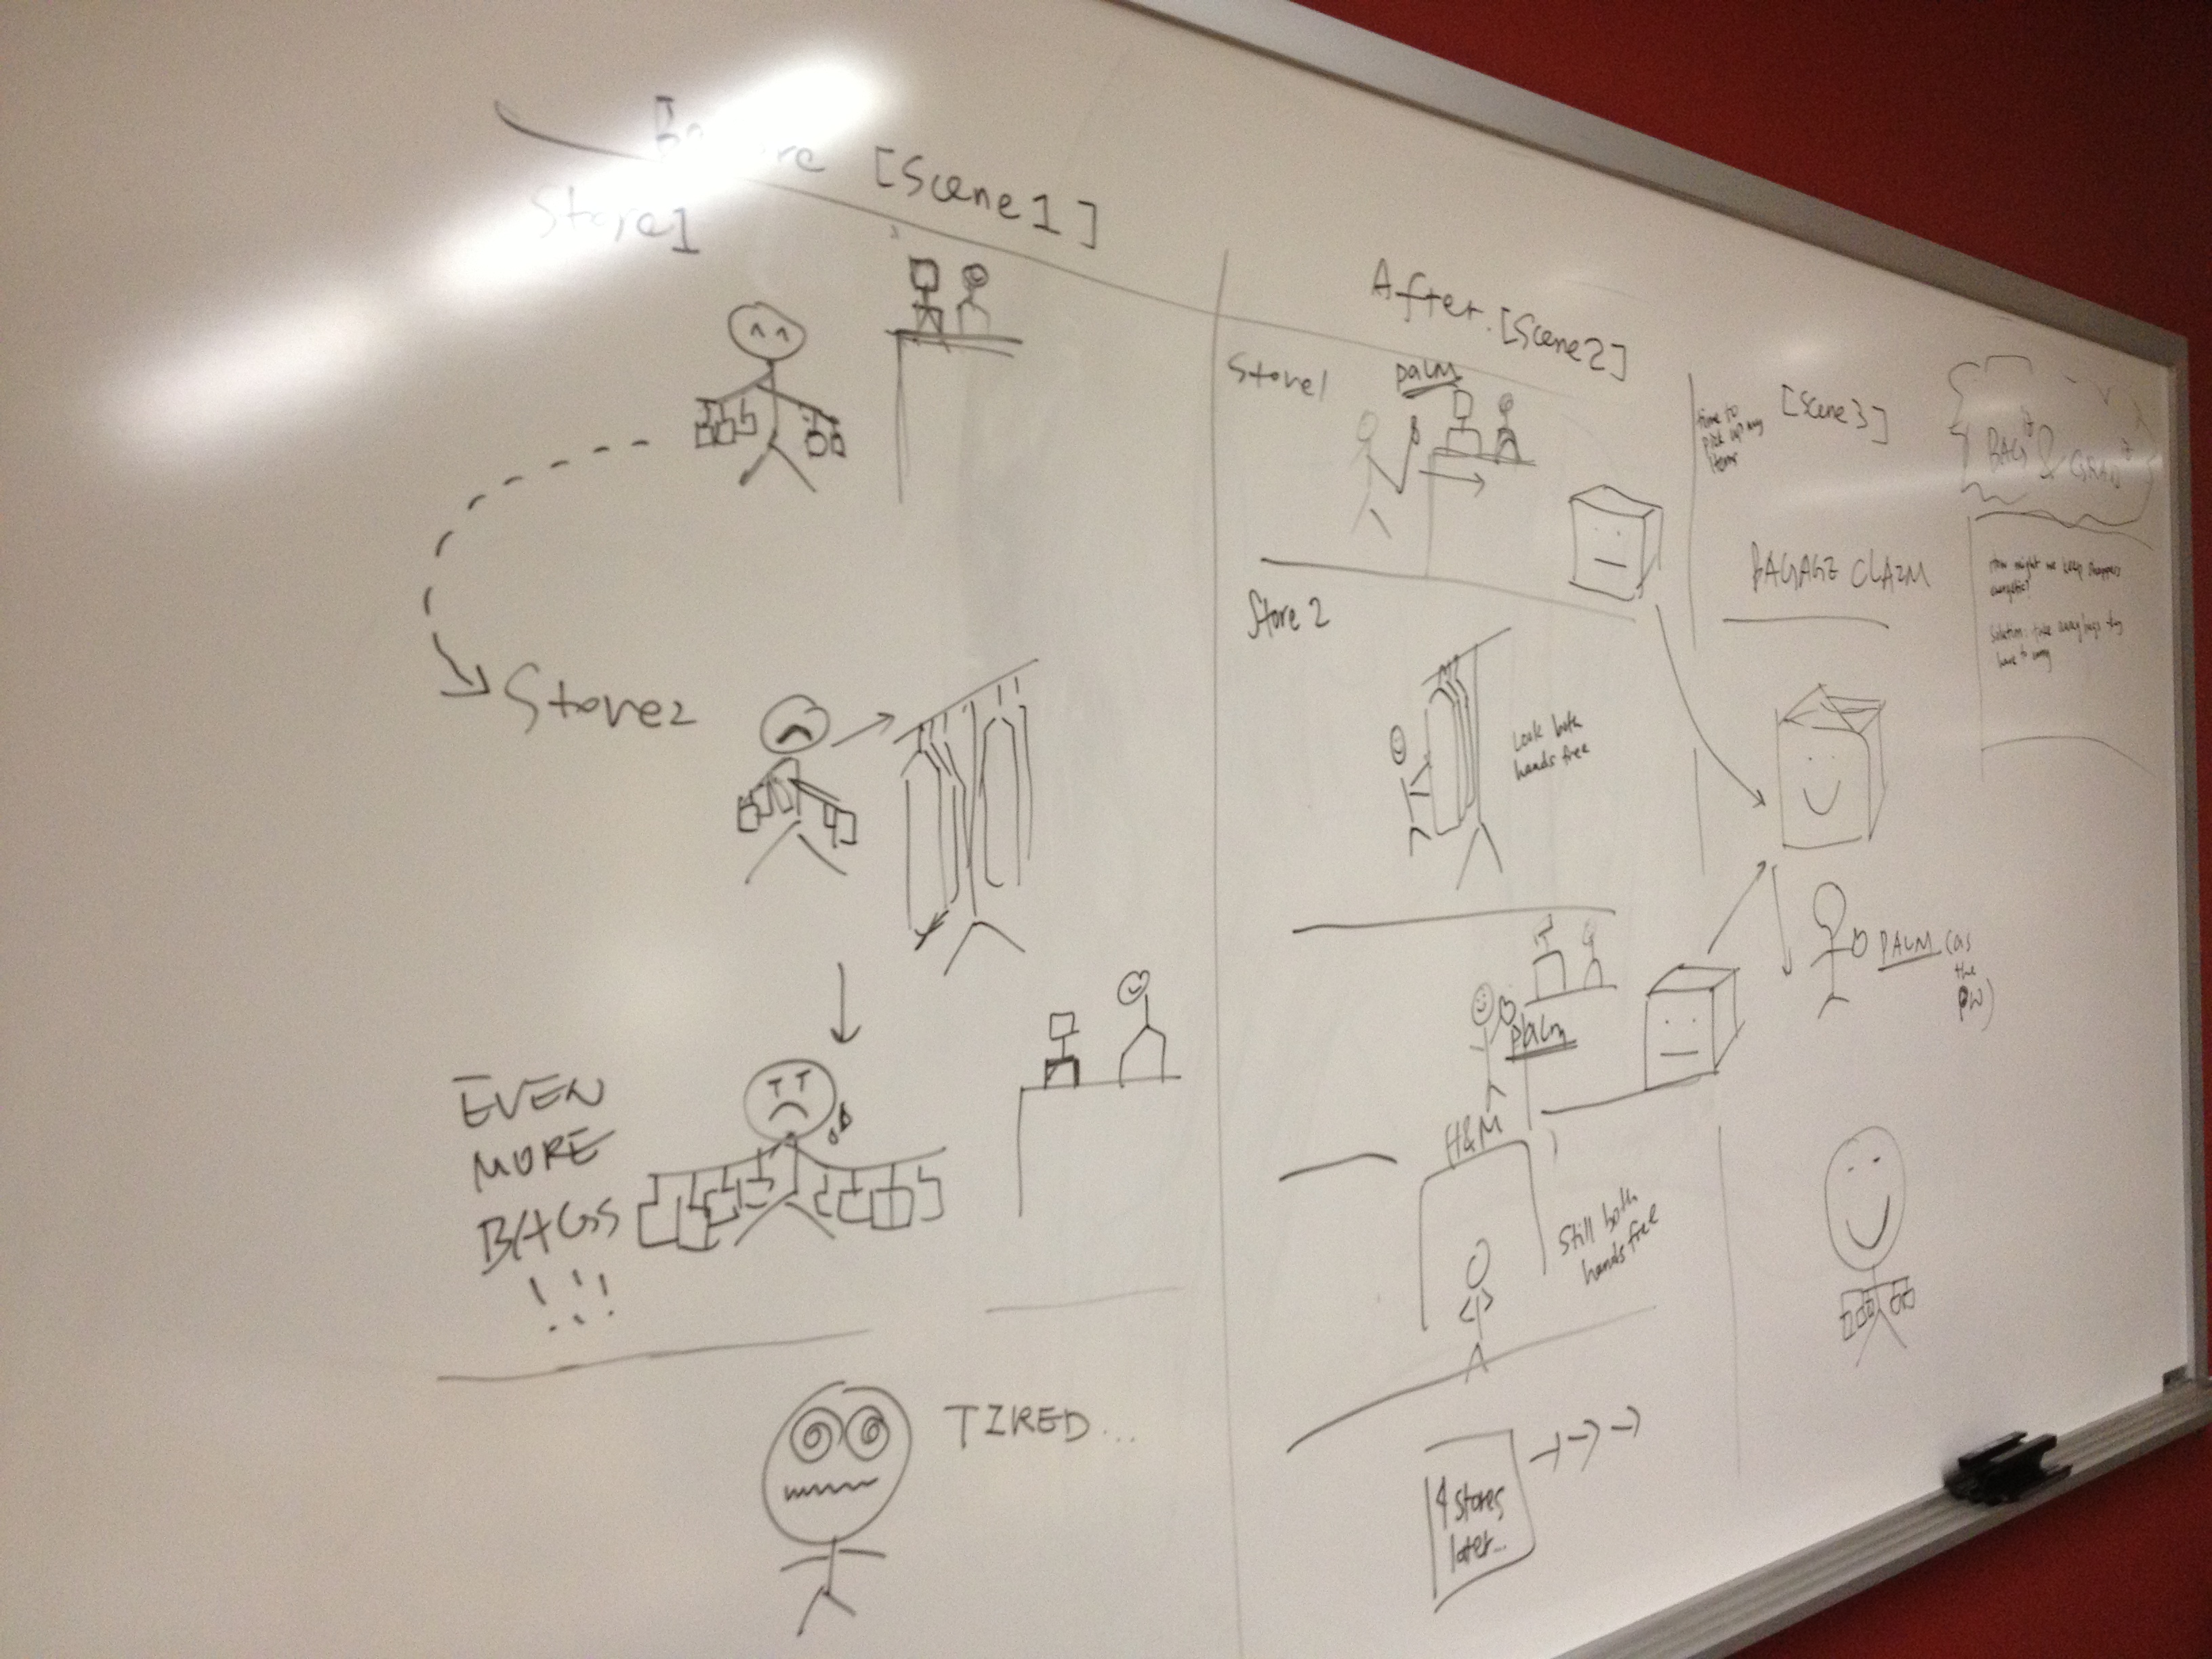 Before [Scene 1]
Store 1
Store 2
EVEN
MORE
BAGS
!!!
TIRED...
After. [Scene 2]
Store 1
palm
Store 2
Look both
hands free
palm
H&M
Still both
hands free
4 stores
later...
[Scene 3]
time to
pick up my
items
BAGAGE CLAIM
PALM (as
the
PW)
BAG &
How might we keep shoppers
energetic?
Solution: take away bags they
have to carry